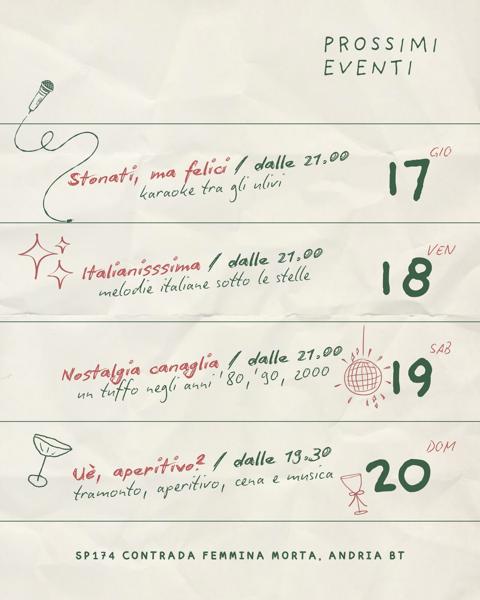 PROSSIMI
EVENTI
Stonati, ma felici / dalle 21.00
karaoke tra gli ulivi
GIO
17
Italianisssima / dalle 21.00
melodie italiane sotto le stelle
VEN
18
Nostalgia canaglia / dalle 21.00
un tuffo negli anni '80, '90, 2000
SAB
19
Uè, aperitivo? / dalle 19.30
tramonto, aperitivo, cena e musica
DOM
20
SP174 CONTRADA FEMMINA MORTA, ANDRIA BT